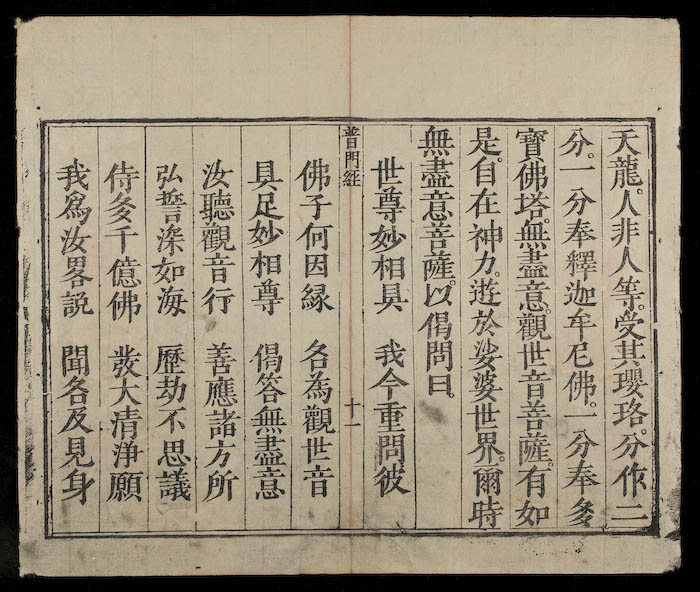 天龍。人非人等。受其瓔珞。分作二
分。一分奉釋迦牟尼佛。一分奉多
寶佛塔。無盡意。觀世音菩薩。有如
是。自在神力。遊於娑婆世界。爾時
無盡意菩薩。以偈問曰。
世尊妙相具　我今重問彼
普門經　十一
佛子何因緣　名為觀世音
具足妙相尊　偈答無盡意
汝聽觀音行　善應諸方所
弘誓深如海　歷劫不思議
侍多千億佛　發大清淨願
我為汝畧説　聞名及見身